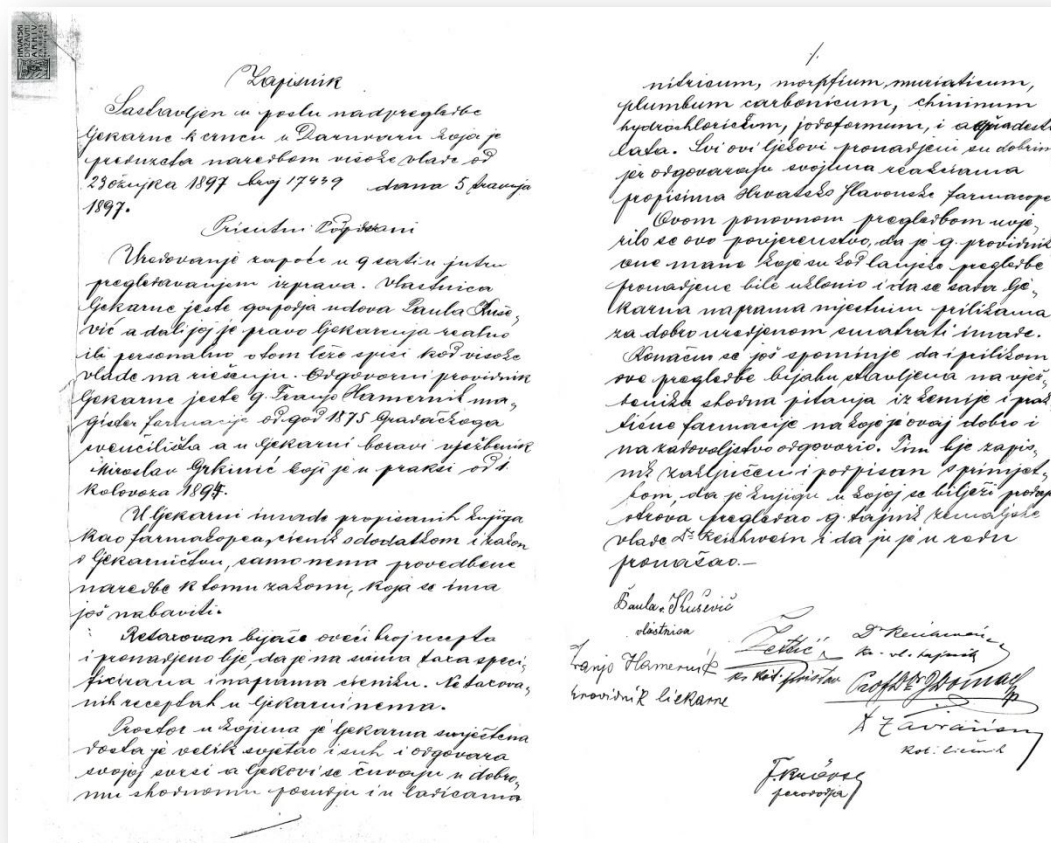 HRVATSKI
DRŽAVNI
ARHIV
Zapisnik
Sastavljen u poslu nadpregledbe
ljekarne k crncu u Daruvaru koja je
preduzeta naredbom visoke vlade od
23 ožujka 1897 broj 17439 dana 5 travnja
1897.
Prisutni Podpisani
Uredovanje započe u 9 sati u jutru
pregledavanjem izprava. Vlastnica
ljekarne jeste gospodja udova Paula Kuše„
vić a dali joj je pravo ljekarenja realno
ili personalno o tom leže spisi kod visoke
vlade na riešenju. Odgovorni providnik
ljekarne jeste g. Franjo Hamernik ma„
gister farmacije od god 1875 Gradačkoga
sveučilišta a u ljekarni boravi vježbenik
Miroslav Grkinić koji je u praksi od 1
Kolovoza 1894.
U ljekarni imade propisanih knjiga
kao farmakopea, cienik s dodatkom i zakon
o ljekarničtvu, samo nema provedbene
naredbe k tomu zakonu, koja se ima
još nabaviti.
Retaxovan bijaše oveći broj recepta
i pronadjeno bje, da je na svima taxa speci„
ficirana i naprama cieniku. Netaxova„
nih receptah u ljekarni nema.
Prostor u kojima je ljekarna smještena
dosta je velik svjetao i suh i odgovara
svojoj svrsi a ljekovi se čuvaju u dobro„
mu shodnomu posudju i u ladicama
./.
nitricum, morphium muriaticum,
plumbum carbonicum, chininum
hydrochloricum, jodoformum, i aqua desti
lata. Svi ovi ljekovi pronadjeni su dobrim
jer odgovaraju svojima reakciama
propisima Hrvatsko Slavonske farmacope
Ovom ponovnom pregledbom uvje„
rilo se ovo povjerenstvo, da je g. providnik
one mane koje su kod lanjske pregledbe
pronadjene bile uklonio i da se sada lje„
karna naprama mjestnim prilikama
za dobro uredjenom smatrati imade.
Konačno se još spominje da i prilikom
ove pregledbe bijahu stavljena na vjež„
benika shodna pitanja iz kemije i prak
tične farmacije na koje je ovaj dobro i
na zadovoljstvo odgovorio. Tim bje zapis„
nik zaključen i podpisan s primjet„
bom, da je knjigu u kojoj se bilježi
otrova pregledao g. tajnik zemaljske
vlade Dr. Reichwein i da ju je u redu
pronašao.—
Paula Kušević
vlastnica
Franjo Hamernik
providnik liekarne
kr. kot. pristav
kr. vl. tajnik
Prof Dr
kot. liečnik
perovodja